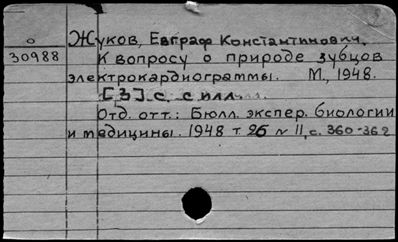 о
Жуков, Евграф Константинович.
30988
К вопросу о природе зубцов
электрокардиограммы. М., 1948.
[3] с. с илл.
Отд. отт.: Бюлл. экспер. биологии
и медицины. 1948 т. 25 № 11, с. 360-362